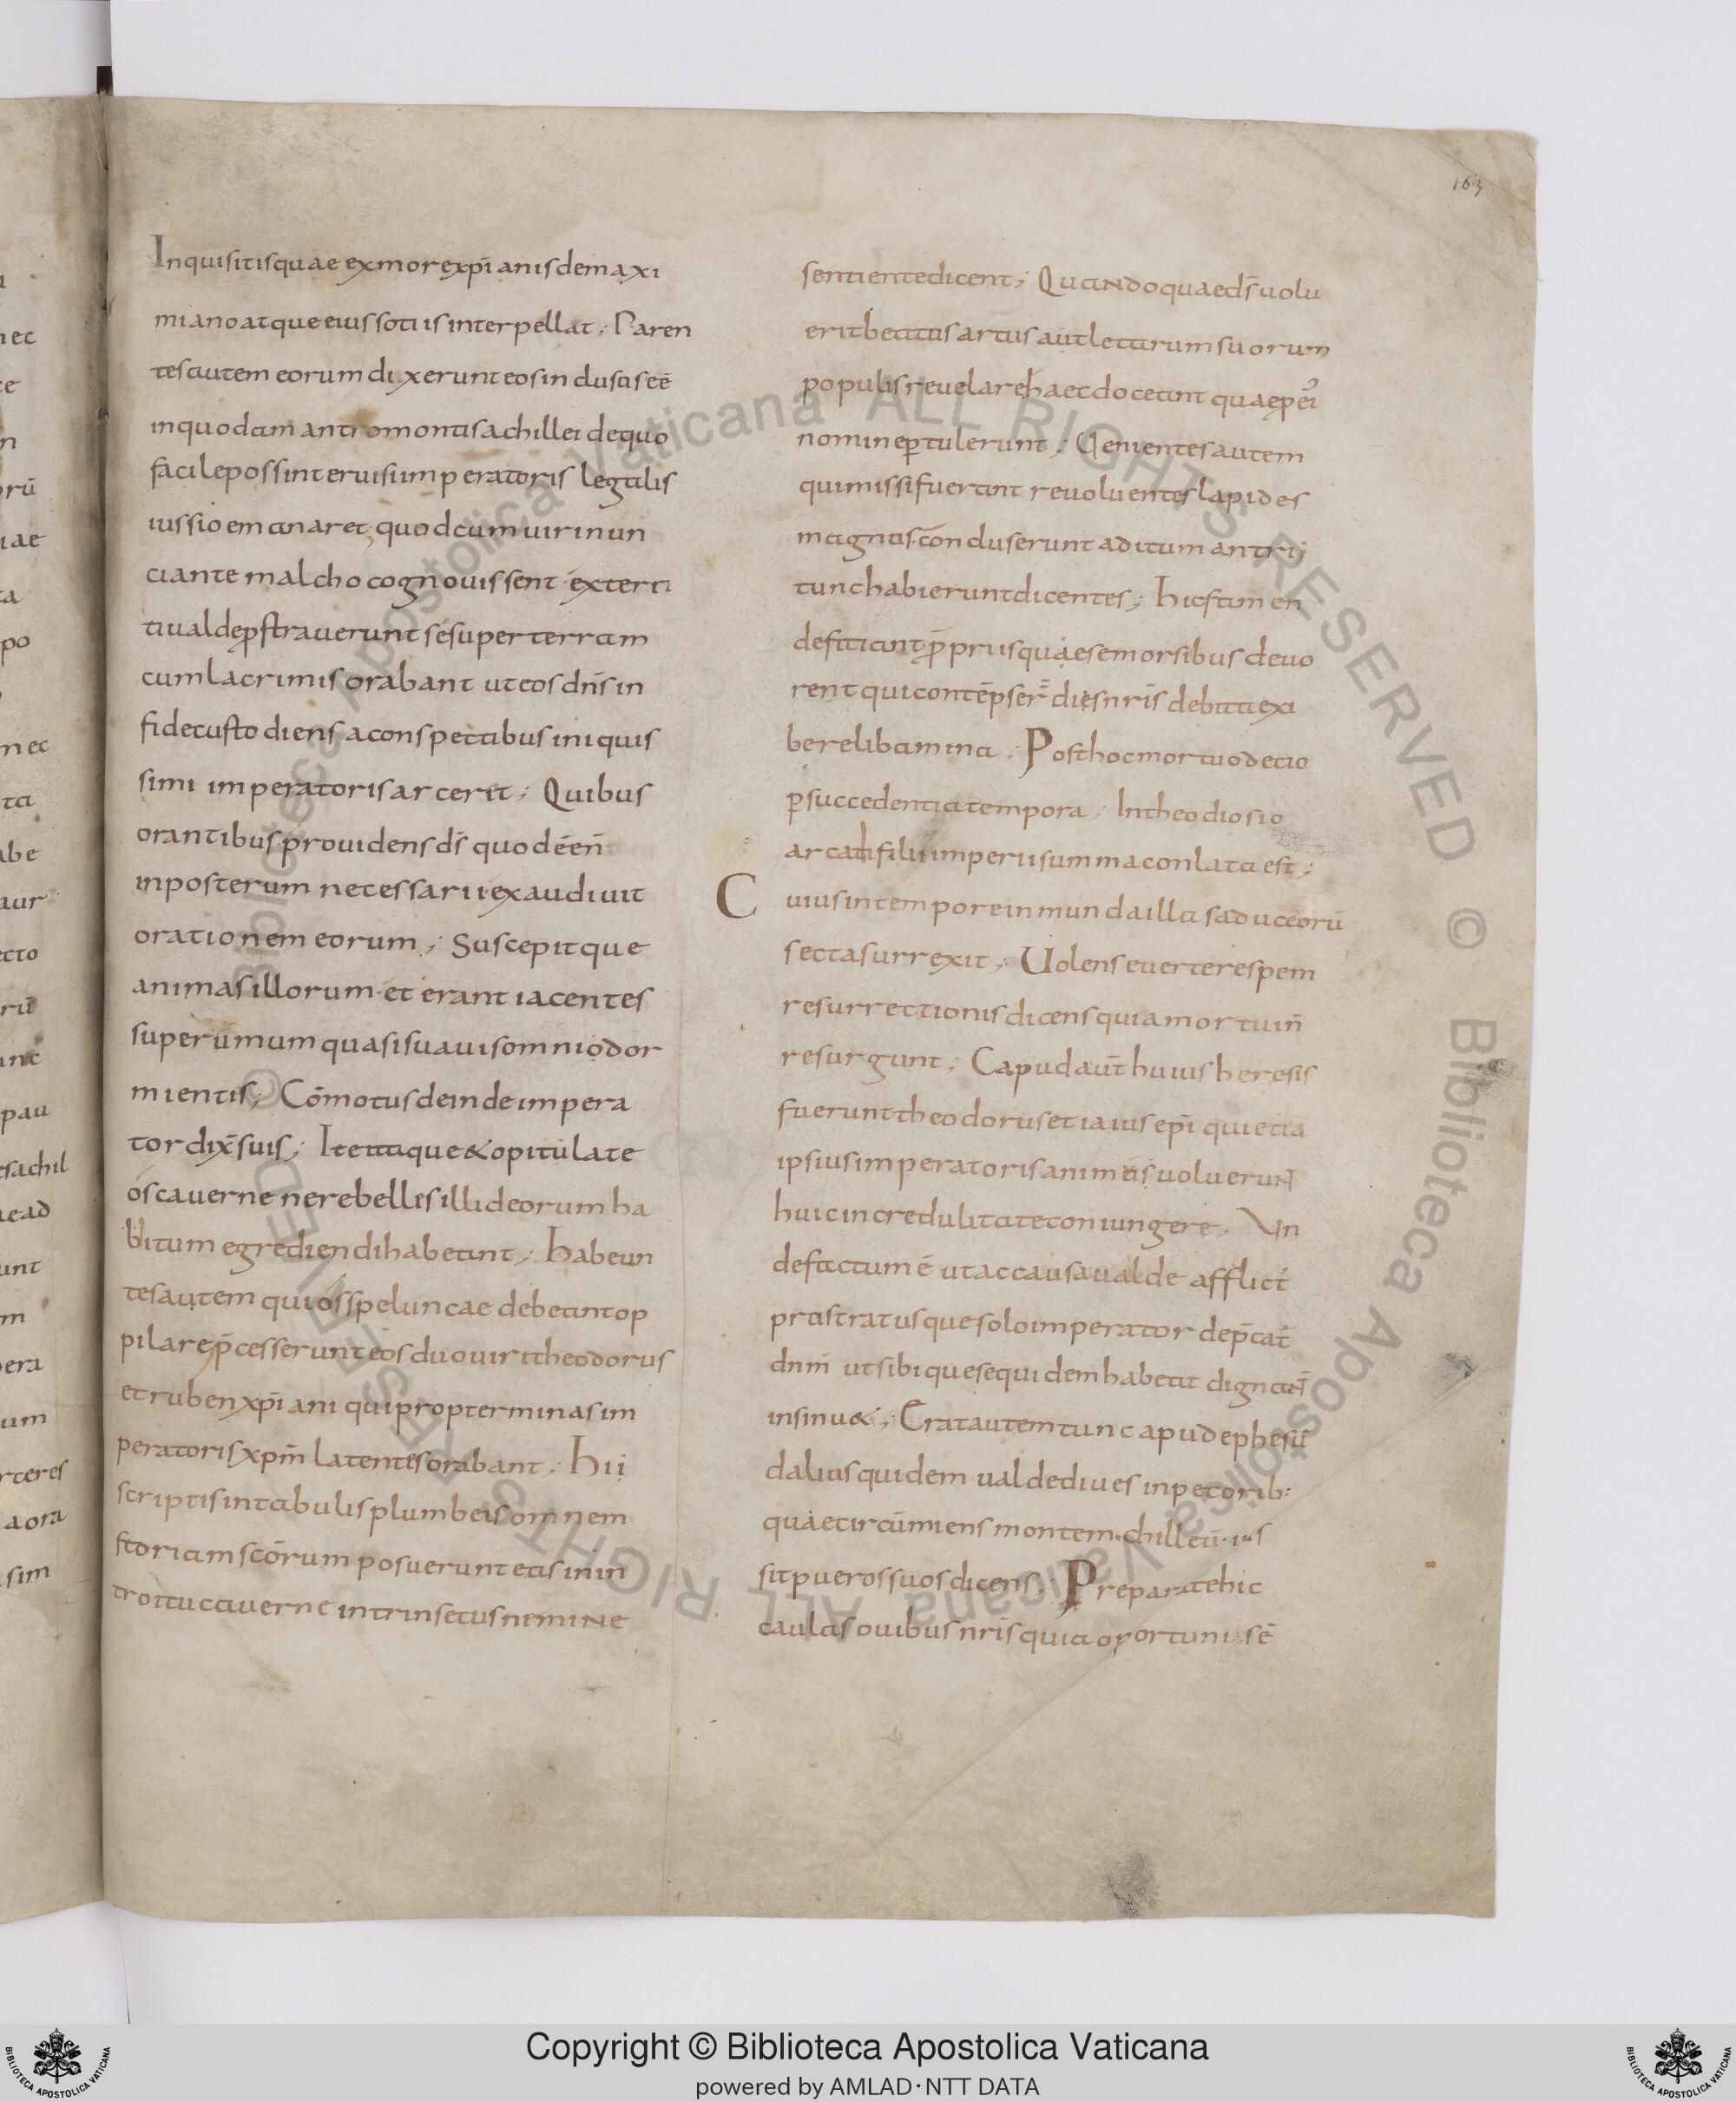 163
Inquisitisquae exmorexp̄ianisdemaxi
mianoatqueeiussotiisinterpellat; Paren
tesautem eorum dixerunteosindususeē
inquodam antromontisachillei dequo
facilepossinteruisiimperatoris legalis
iussioemanaret, quodcumuirinun
ciante malcho cognouissent exterri
tiualdeprostrauerunt sesuperterram
cumlacrimisorabant uteosdn̄sin
fidecustodiens aconspectibusiniquis
simi imperatorisarcerit; Quibus
orantibus·prouidensds̄ quodēēn̄
inposterum necessarii·exaudiuit
orationem eorum; Suscepitque
animasillorum·et erant iacentes
superumum quasisuauisomniodor
mientis; Cōmotusdeinde impera
tor dix̄suis; Iteitaque&opitulate
oscauerne nerebellesillideorumha
bitum egrediendihabeant; habeun
tesautem quiosspeluncae debeantop
pilarep̄cesserunteos duouiritheodorus
etruben xp̄iani quipropterminasim
peratorisxp̄m latentesorabant; hii
scriptisintabulisplumbeisomnem
storiamscōrum posuerunt easinin
troitucauerne intrinsecusnemine
sentientedicent; Quandoquaeds̄uolu
eritbeatusartusautlettarumsuorum
populisreuelarehaecdoceant quaepei
nomineꝑtulerunt; Uenientesautem
quimissifuerant reuoluenteslapides
magnus·cōnduserunt aditum antrij
tunchabieruntdicentes; hicftamen
deficiant·p̄priisquaesemorsibus deuo
rentquicontēpser̄ diesnr̄is debitaexi
berelibamina; Posthocmortuodecio
ꝑsuccedentiatempora; Intheodiosio
arcadifiliiimperiisummaconlata est;
Cuiusintemporeinmundailla saduceorū
sectasurrexit; Uolenseuerterespem
resurrectionisdicensquiamortuin̄
resurgunt; Capudaut̄huiusheresis
fuerunttheodorusetiaiusep̄i quietia
ipsiusimperatorisanimasuoluerunt
huicincredulitateconiungere. Un
defactumē utaccausaualde afflict̄
prastratusquesoloimperator dep̄cat̄
dn̄m utsibiquesequidemhabeat dignat̄
insinu&; Eratautemtunc apudephesū
daliusquidem ualdediues inpecorib:
quaecircūmiens montem·chilleū·ius
sitpuerossuosdicens; Preparatehic
caulasouibusnr̄isquia oportunusē
Copyright © Biblioteca Apostolica Vaticana
powered by AMLAD·NTT DATA